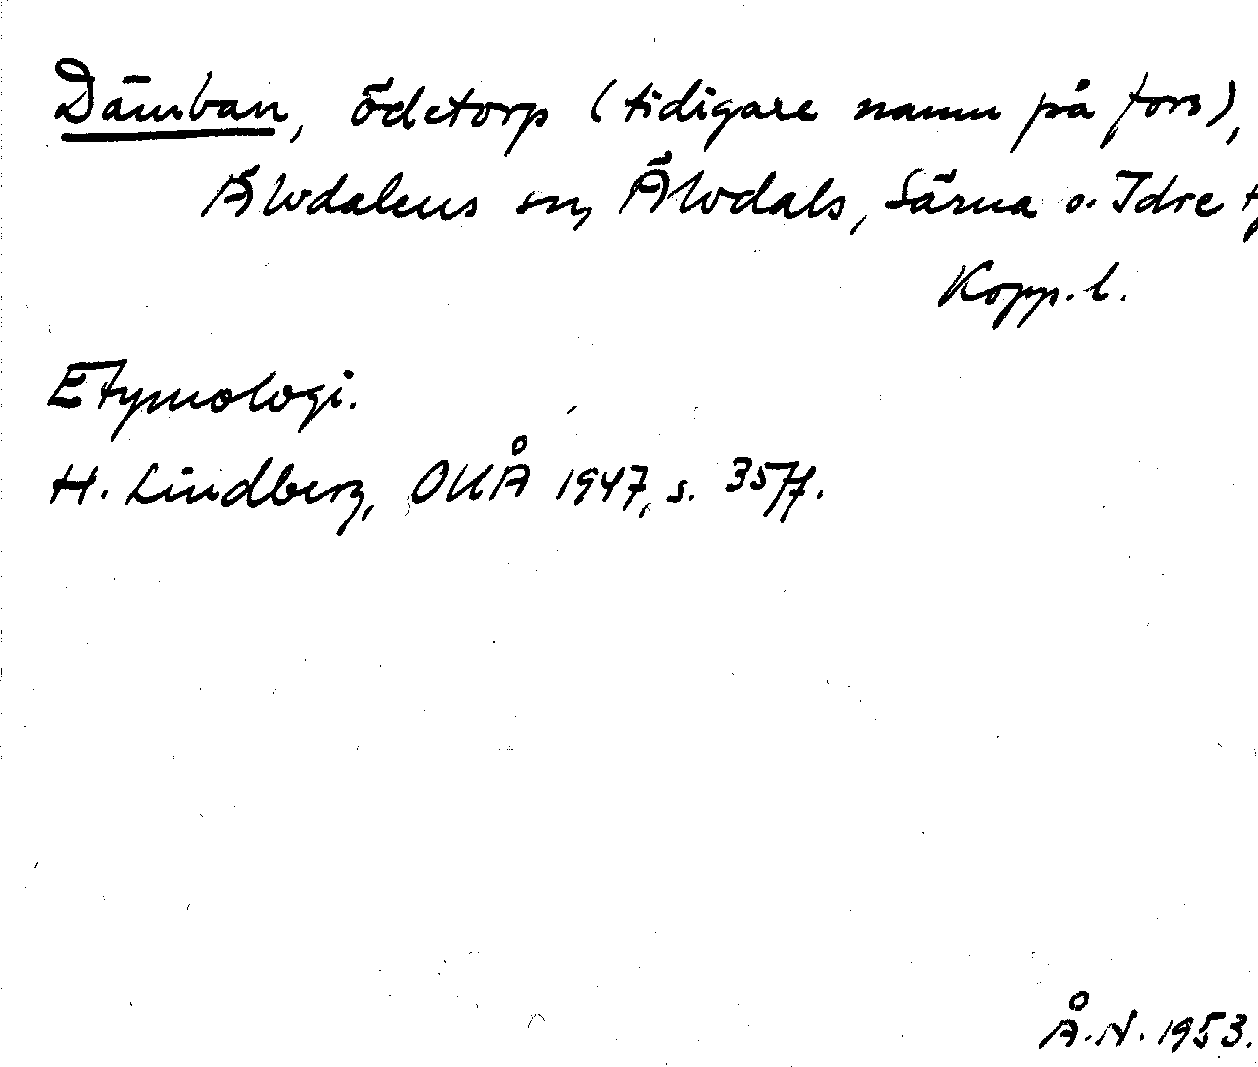 Dämban, ödetorp (tidigare namn på fors),
Älvdalens sn, Älvdals, Särna o. Idre t
Kopp. l.
Etymologi.
H. Lindberg, OUÅ 1947, s. 35 ff.
Å.N. 1953.